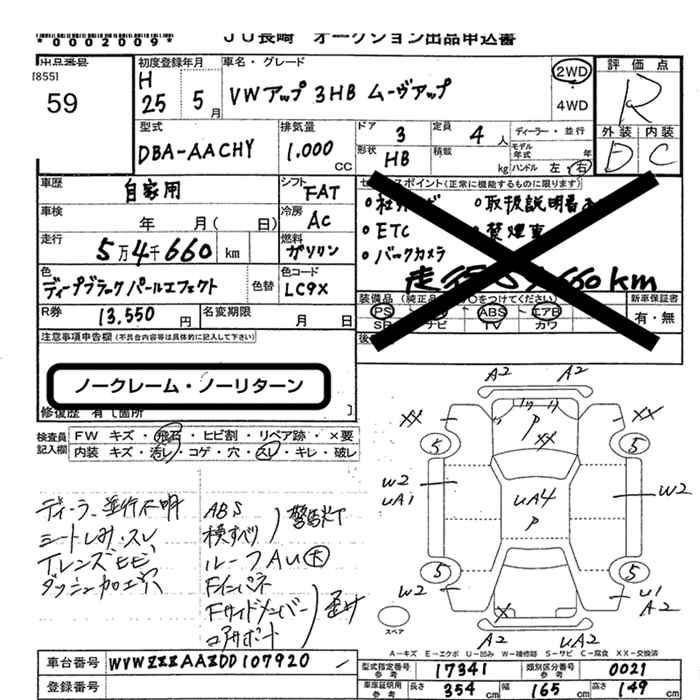 *0002009*
JU長崎 オークション出品申込書
出品番号
[855]
59
初度登録年月
H
25 5月
車名・グレード
VWアップ 3HB ムーヴアップ
2WD
4WD
評価点
R
外装 内装
D C
型式
DBA-AACHY
排気量
1.000
CC
ドア 3
定員 4人
形状 HB
積載 kg
ディーラー・並行
モデル年式 年
ハンドル 左・右
車歴 自家用
シフト FAT
車検 年 月( 日)
冷房 AC
走行 5万4千660km
燃料 ガソリン
色 ディープブラックパールエフェクト 色替
色コード LC9X
R券 13,550円
名変期限 月 日
セールスポイント(正常に機能するものに限ります)
○ETC
○取扱説明書
○バックカメラ
○禁煙車
装備品
PS
ABS
エアB
TV
カワ
新車保証書
有・無
注意事項申告欄(不具合内容等は具体的に記入して下さい)
ノークレーム・ノーリターン
修復歴 有 [箇所 ]
検査員記入欄
FW キズ・飛石・ヒビ割・リペア跡・×要
内装 キズ・汚レ・コゲ・穴・スレ・キレ・破レ
ディーラ、並行不明
シートしみ・スレ
Tレンズヒビ
ダッシュ加工穴
ABS
横すべり
警告灯
ルーフAU大
Fインパネ
Fサイドメンバー
コアサポート
A2 A2
XX XX
5 5
P
XX
W2
UA1
UA4
P
W2
5 5
W2
X
U1
A2
A2 UA2
スペア
A-キズ E-エクボ U-凹み W-補修跡 S-サビ C-腐食 XX-交換済
車台番号 WVWZZZAAZDD107920
登録番号
型式指定番号 参考 17341
類別区分番号 参考 0021
車庫証明用 参考 長さ 354cm 幅 165cm 高さ 149cm